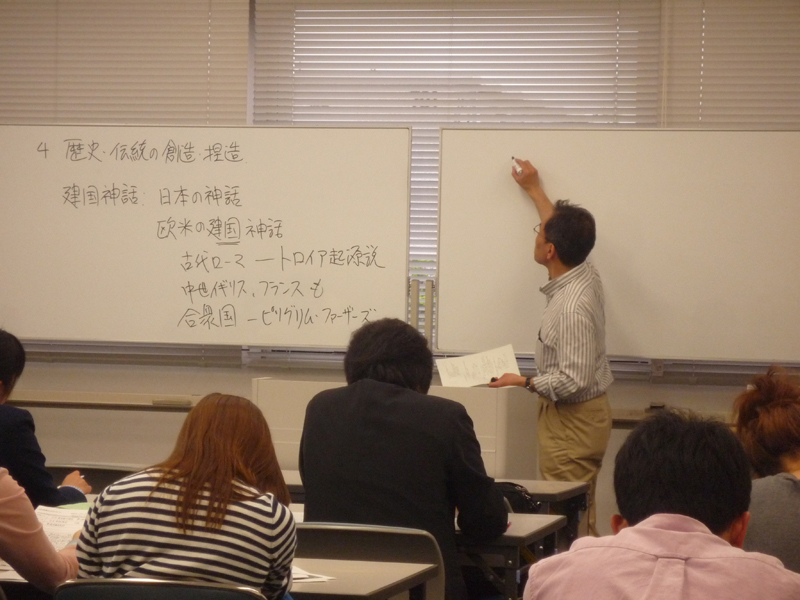 4 歴史・伝統の創造・捏造
建国神話: 日本の神話
欧米の建国神話
古代ローマ ートロイア起源説
中世イギリス、フランスも
合衆国 ーピリグリム・ファーザーズ